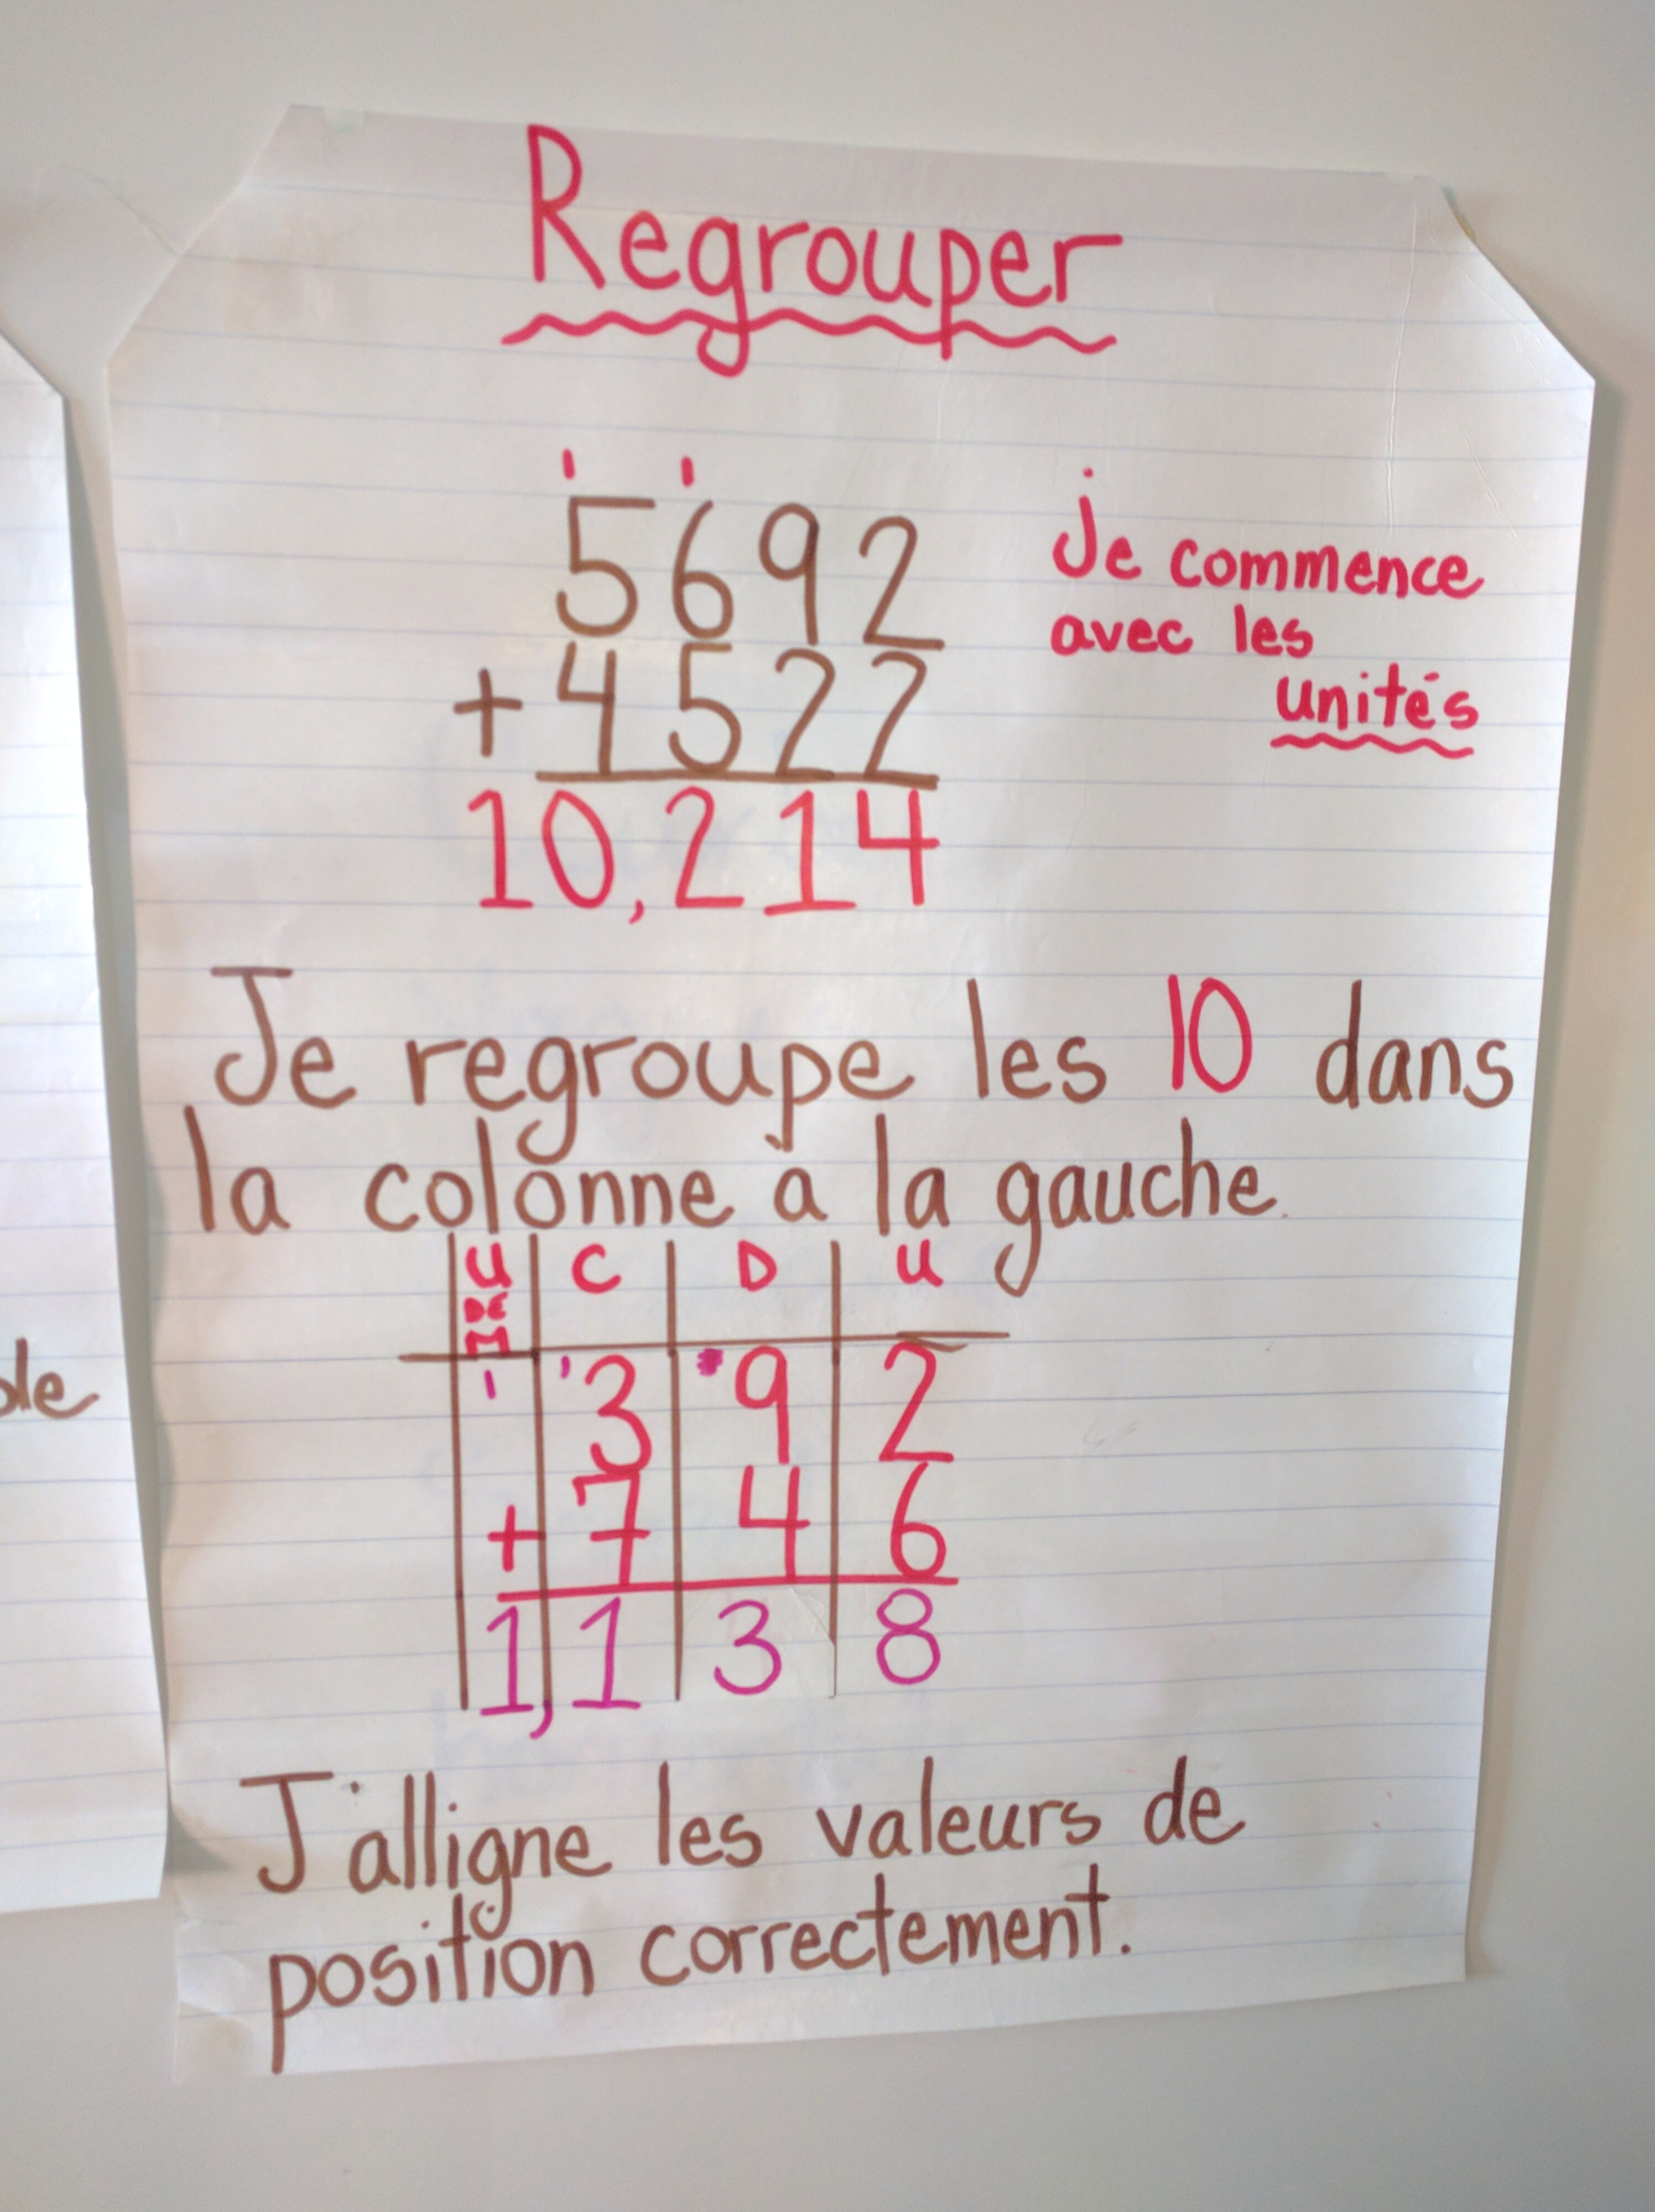 Regrouper
ı ı
5692
+4522
10,214
Je commence
avec les
unités
Je regroupe les 10 dans
la colonne a la gauche.
U C D U
M
ı ı3 9 2
+ 7 4 6
1,1 3 8
J'alligne les valeurs de
position correctement.
ole